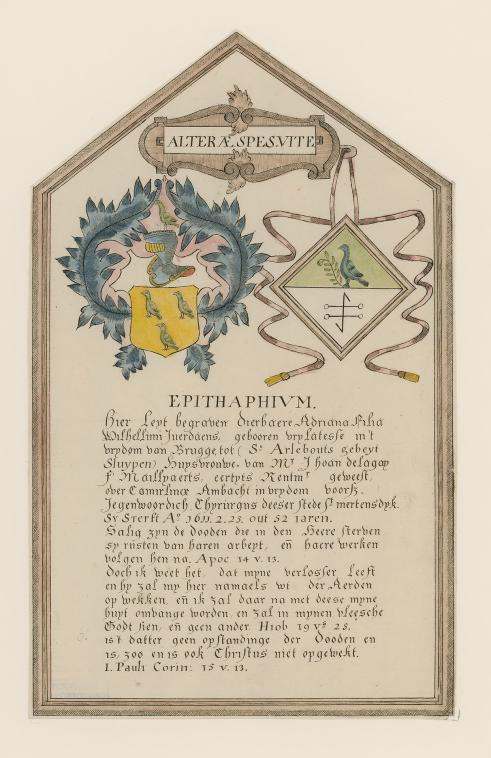 ALTERÆ.SPES.VITE
EPITHAPHIVM.
Hier Leyt begraven Dierbaere Adriana Filia
Wilhellimi Juerdaens, gebooren vrylatesse in't
vrydom van Brugge, tot ( St Arlebouts gebeyt
Sluypen) Huysvrouwe van Mr Jhoan delagap
fs Maillyaerts, eertyts Rentmr geweest
over Camirlincx Ambacht in vrydom voorsz.
Jegenwoordich Chyrurgus deeser stede st mertensdyk.
Sy Sterft Ao 1611. 2. 25. out 52 iaren.
Salig zyn de dooden die in den Heere sterven
sy rusten van haren arbeyt, eñ haere werken
volgen hen na. Apoc 14 v. 13.
Doch ik weet het, dat myne verlosser Leeft
en hy zal my hier namaels wt der Aerden
op wekken, eñ ik zal daar na met deese myne
huyt omvange worden, en zal in mynen vleesche
Godt sien, eñ geen ander. Hiob 19 vs 25.
is't datter geen opstandinge der Dooden en
is, zoo en is ook Christus niet opgewekt.
I. Pauli Corin: 15 v. 13.